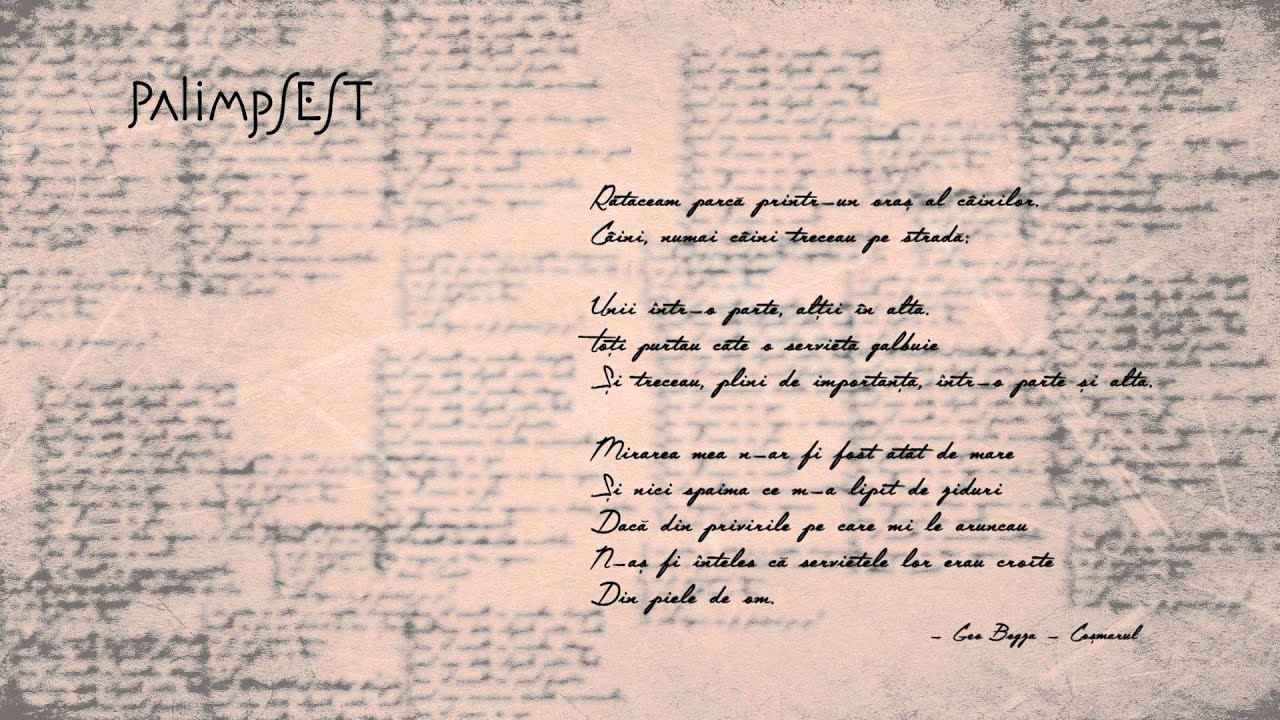 PALIMPSEST
Rătăceam parcă printr-un oraș al câinilor.
Câini, numai câini treceau pe stradă;
Unii într-o parte, alții în alta.
Toți purtau câte o servietă gălbuie
Și treceau, plini de importanță, într-o parte și alta.
Mirarea mea n-ar fi fost atât de mare
Și nici spaima ce m-a lipit de ziduri
Dacă din privirile pe care mi le aruncau
N-aș fi înteles că servietele lor erau croite
Din piele de om.
- Geo Bogza - Coșmarul